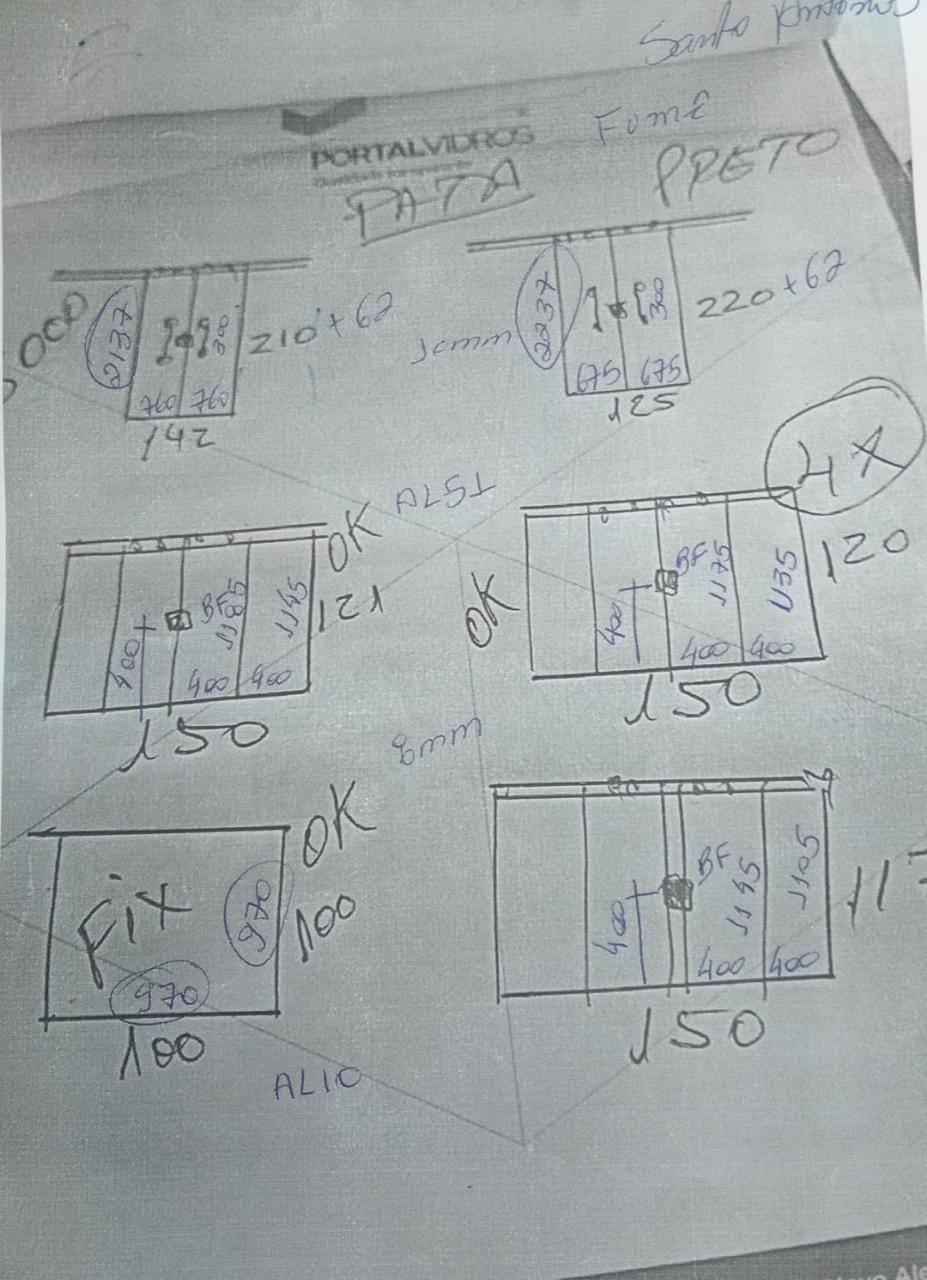 Santo
Fumê
PORTALVIDROS
PATA
PRETO
2137
300
210 + 62
760 760
142
10mm
2237
300
220 + 62
675 675
125
AL51
4X
OK
121
BF
1185
1145
400
400 400
150
OK
120
BF
1175
1135
400
400 400
150
8mm
OK
Fix
970
100
970
100
BF
1145
1105
400
400 400
150
AL10